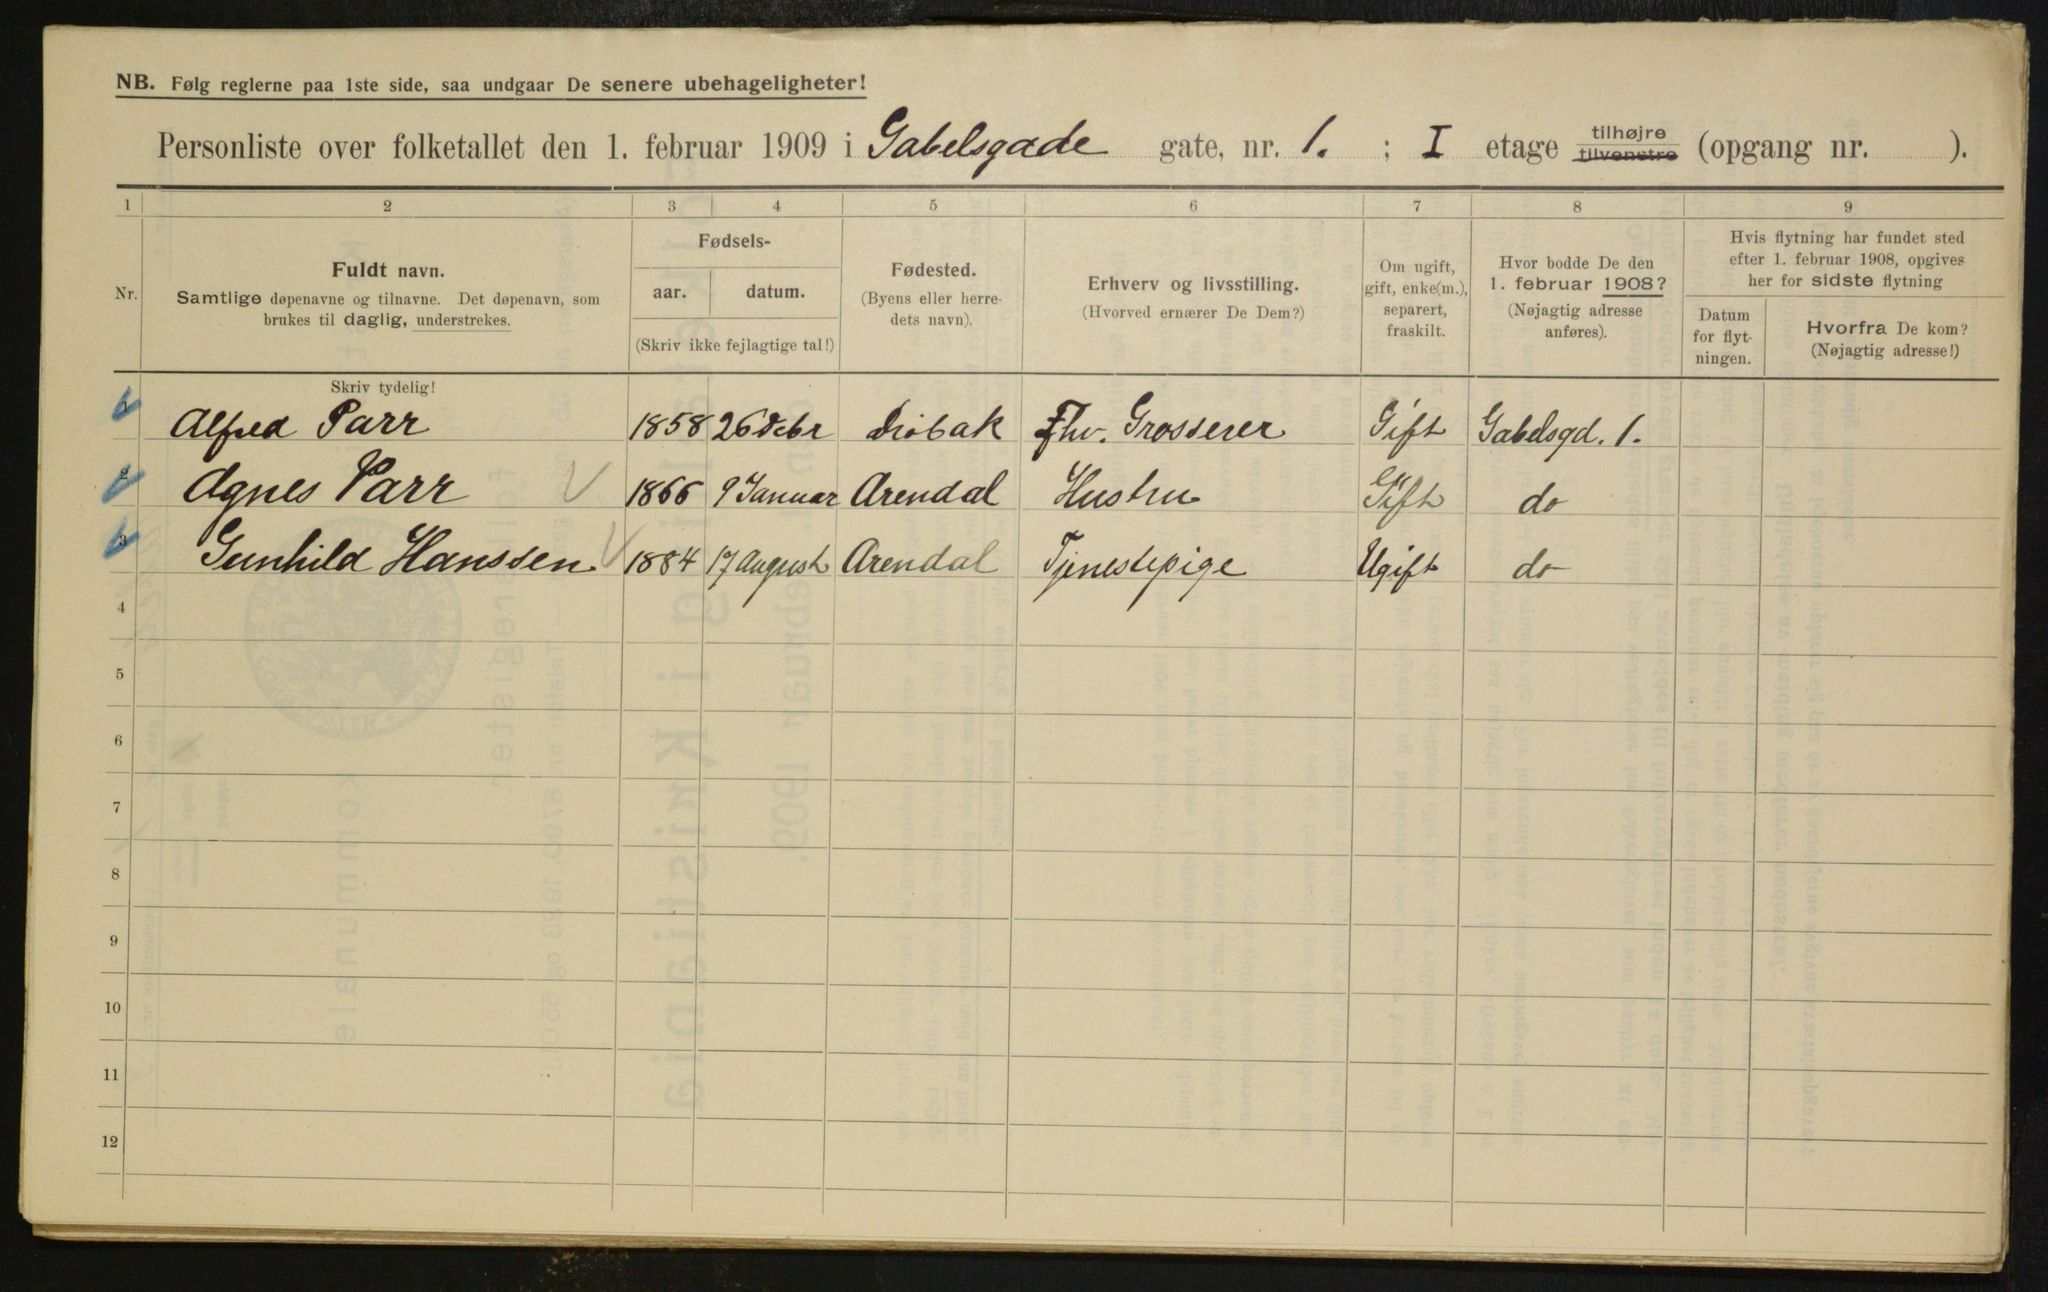 NB. Følg reglerne paa 1ste side, saa undgaar De senere ubehageligheter!
Personliste over folketallet den 1. februar 1909 i Gabelsgade gate, nr. 1. ; I etage tilhøjre tilvenstre (opgang nr. ).
1 2 3 4 5 6 7 8 9
Nr.
Fuldt navn.
Samtlige døpenavne og tilnavne. Det døpenavn, som
brukes til daglig, understrekes.
Skriv tydelig!
Fødsels-
aar. datum.
(Skriv ikke fejlagtige tal!)
Fødested.
(Byens eller herre-
dets navn).
Erhverv og livsstilling.
(Hvorved ernærer De Dem?)
Om ugift,
gift, enke(m.),
separert,
fraskilt.
Hvor bodde De den
1. februar 1908?
(Nøjagtig adresse
anføres).
Hvis flytning har fundet sted
efter 1. februar 1908, opgives
her for sidste flytning
Datum
for flyt-
ningen.
Hvorfra De kom?
(Nøjagtig adresse!)
1 Alfred Parr 1858 26 Febr Drøbak Fhv. Grosserer Gift Gabelsgd. 1.
2 Agnes Parr 1866 9 Januar Arendal Hustru Gift do
3 Gunhild Hanssen 1884 17 August Arendal Tjenestepige Ugift do
4
5
6
7
8
9
10
11
12